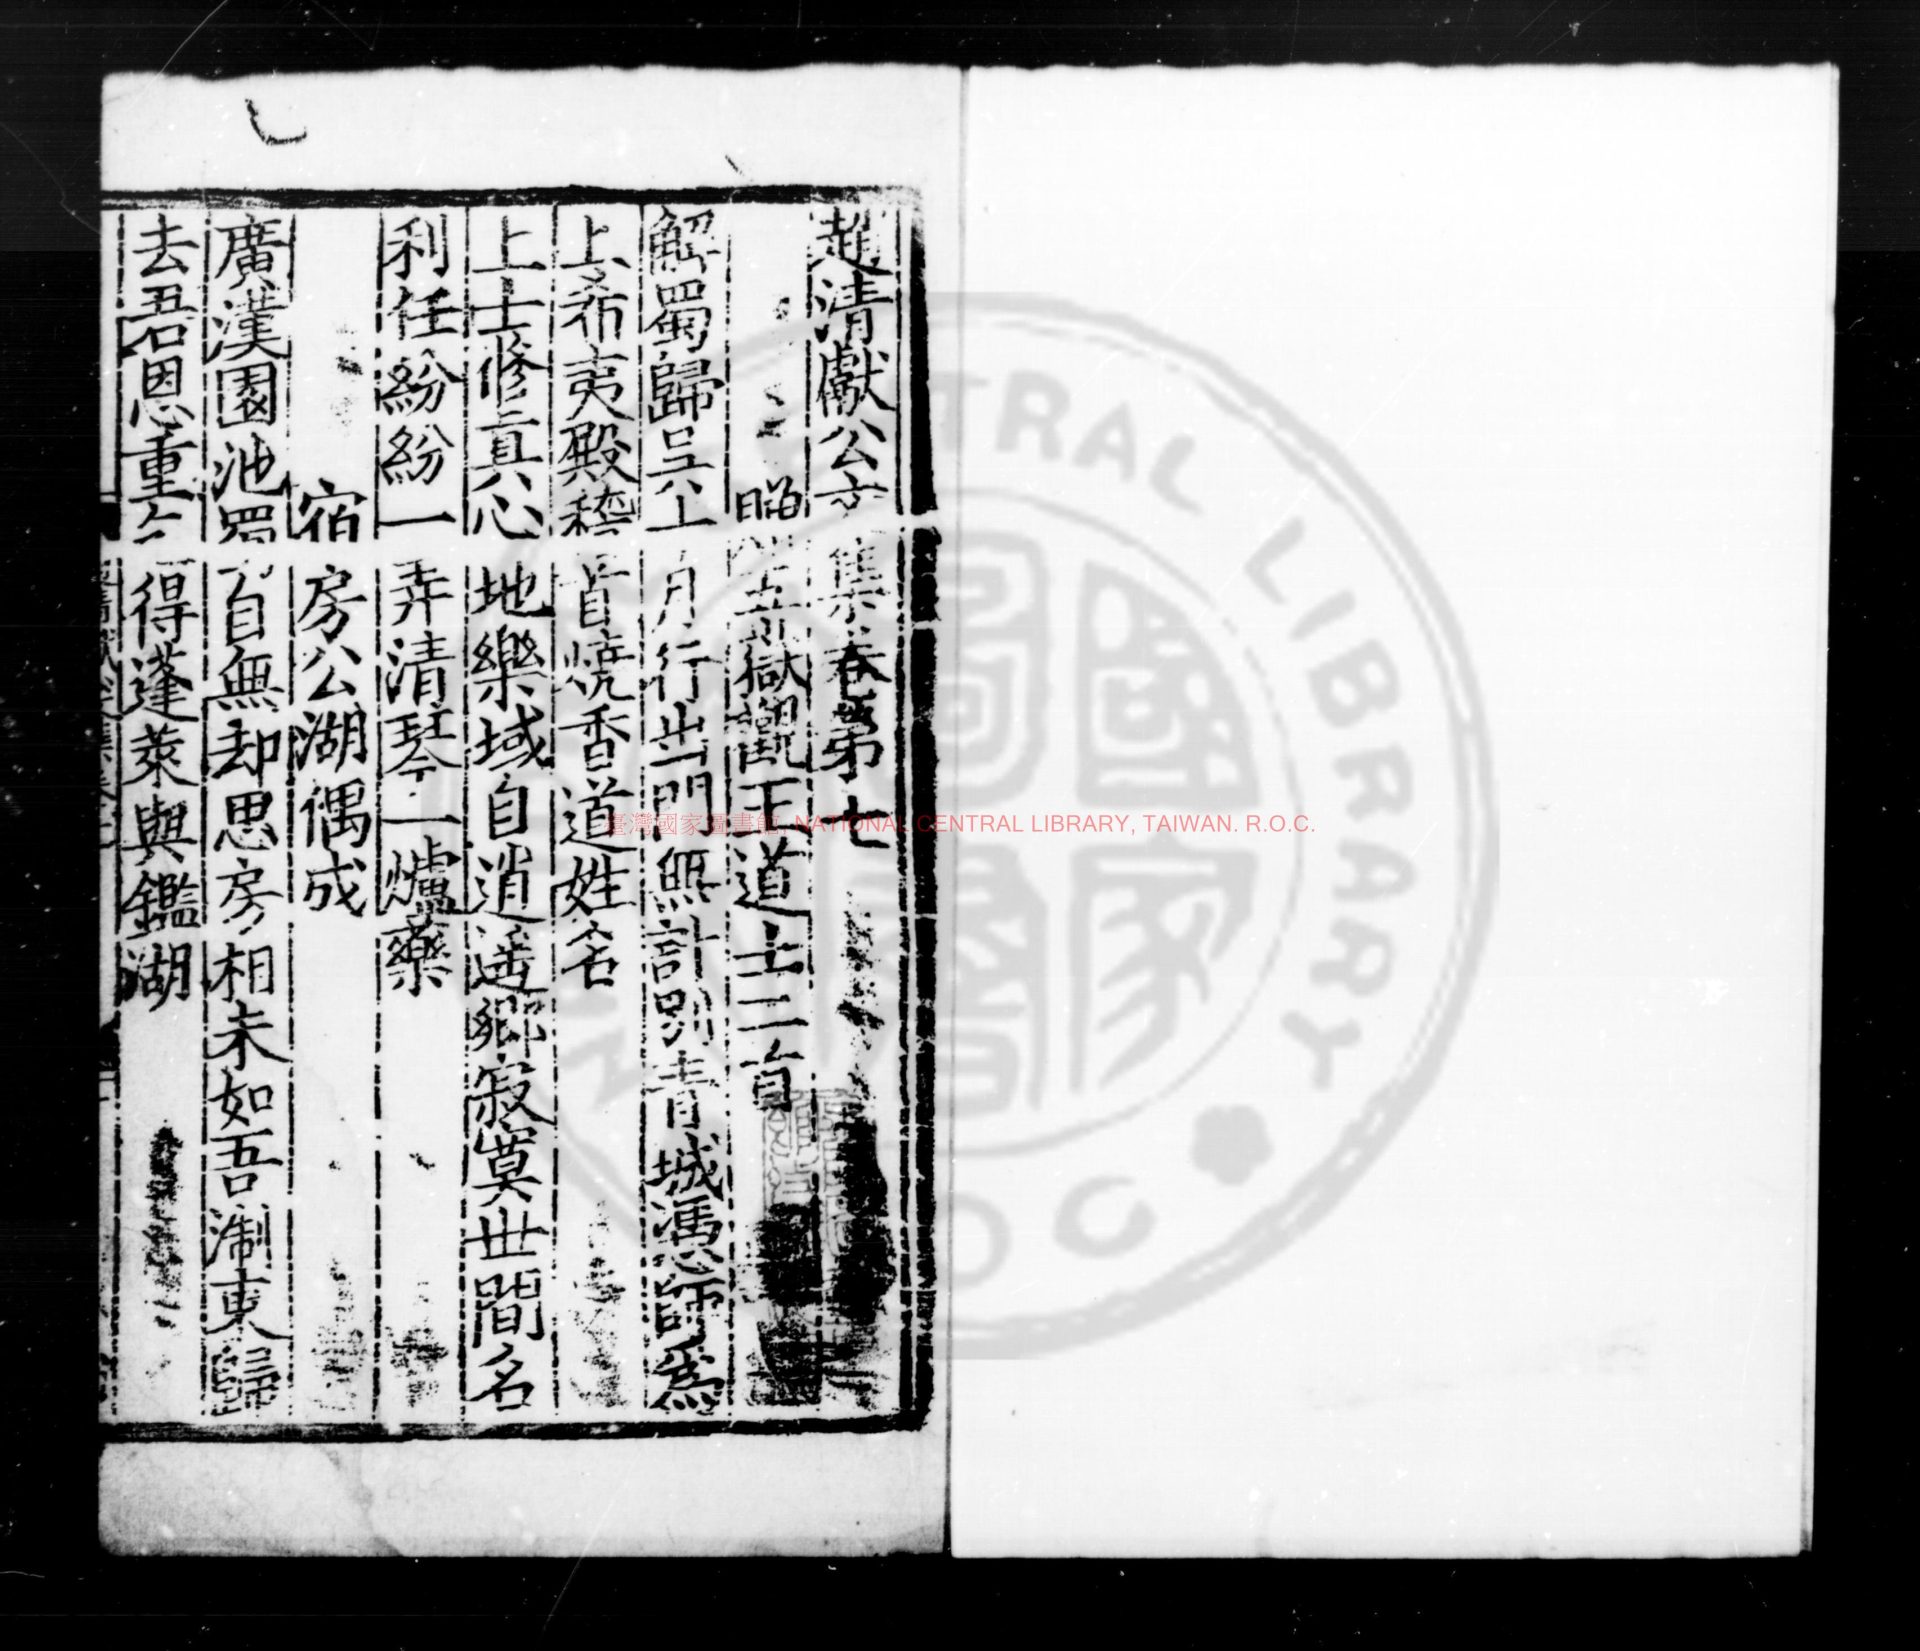 趙清獻公文集卷第七
贈五嶽觀王道士二首
解蜀歸吳上月行出門無計別青城憑師爲
上希夷殿稽首燒香道姓名
上士修真心地樂域自消遥鄉寂寞世間名
利任紛紛一弄清琴一爐藥
宿房公湖偶成
廣漢園池蜀自無却思房相未如吾淛東歸
去君恩重得蓬萊與鑑湖
臺灣國家圖書館, NATIONAL CENTRAL LIBRARY, TAIWAN. R.O.C.